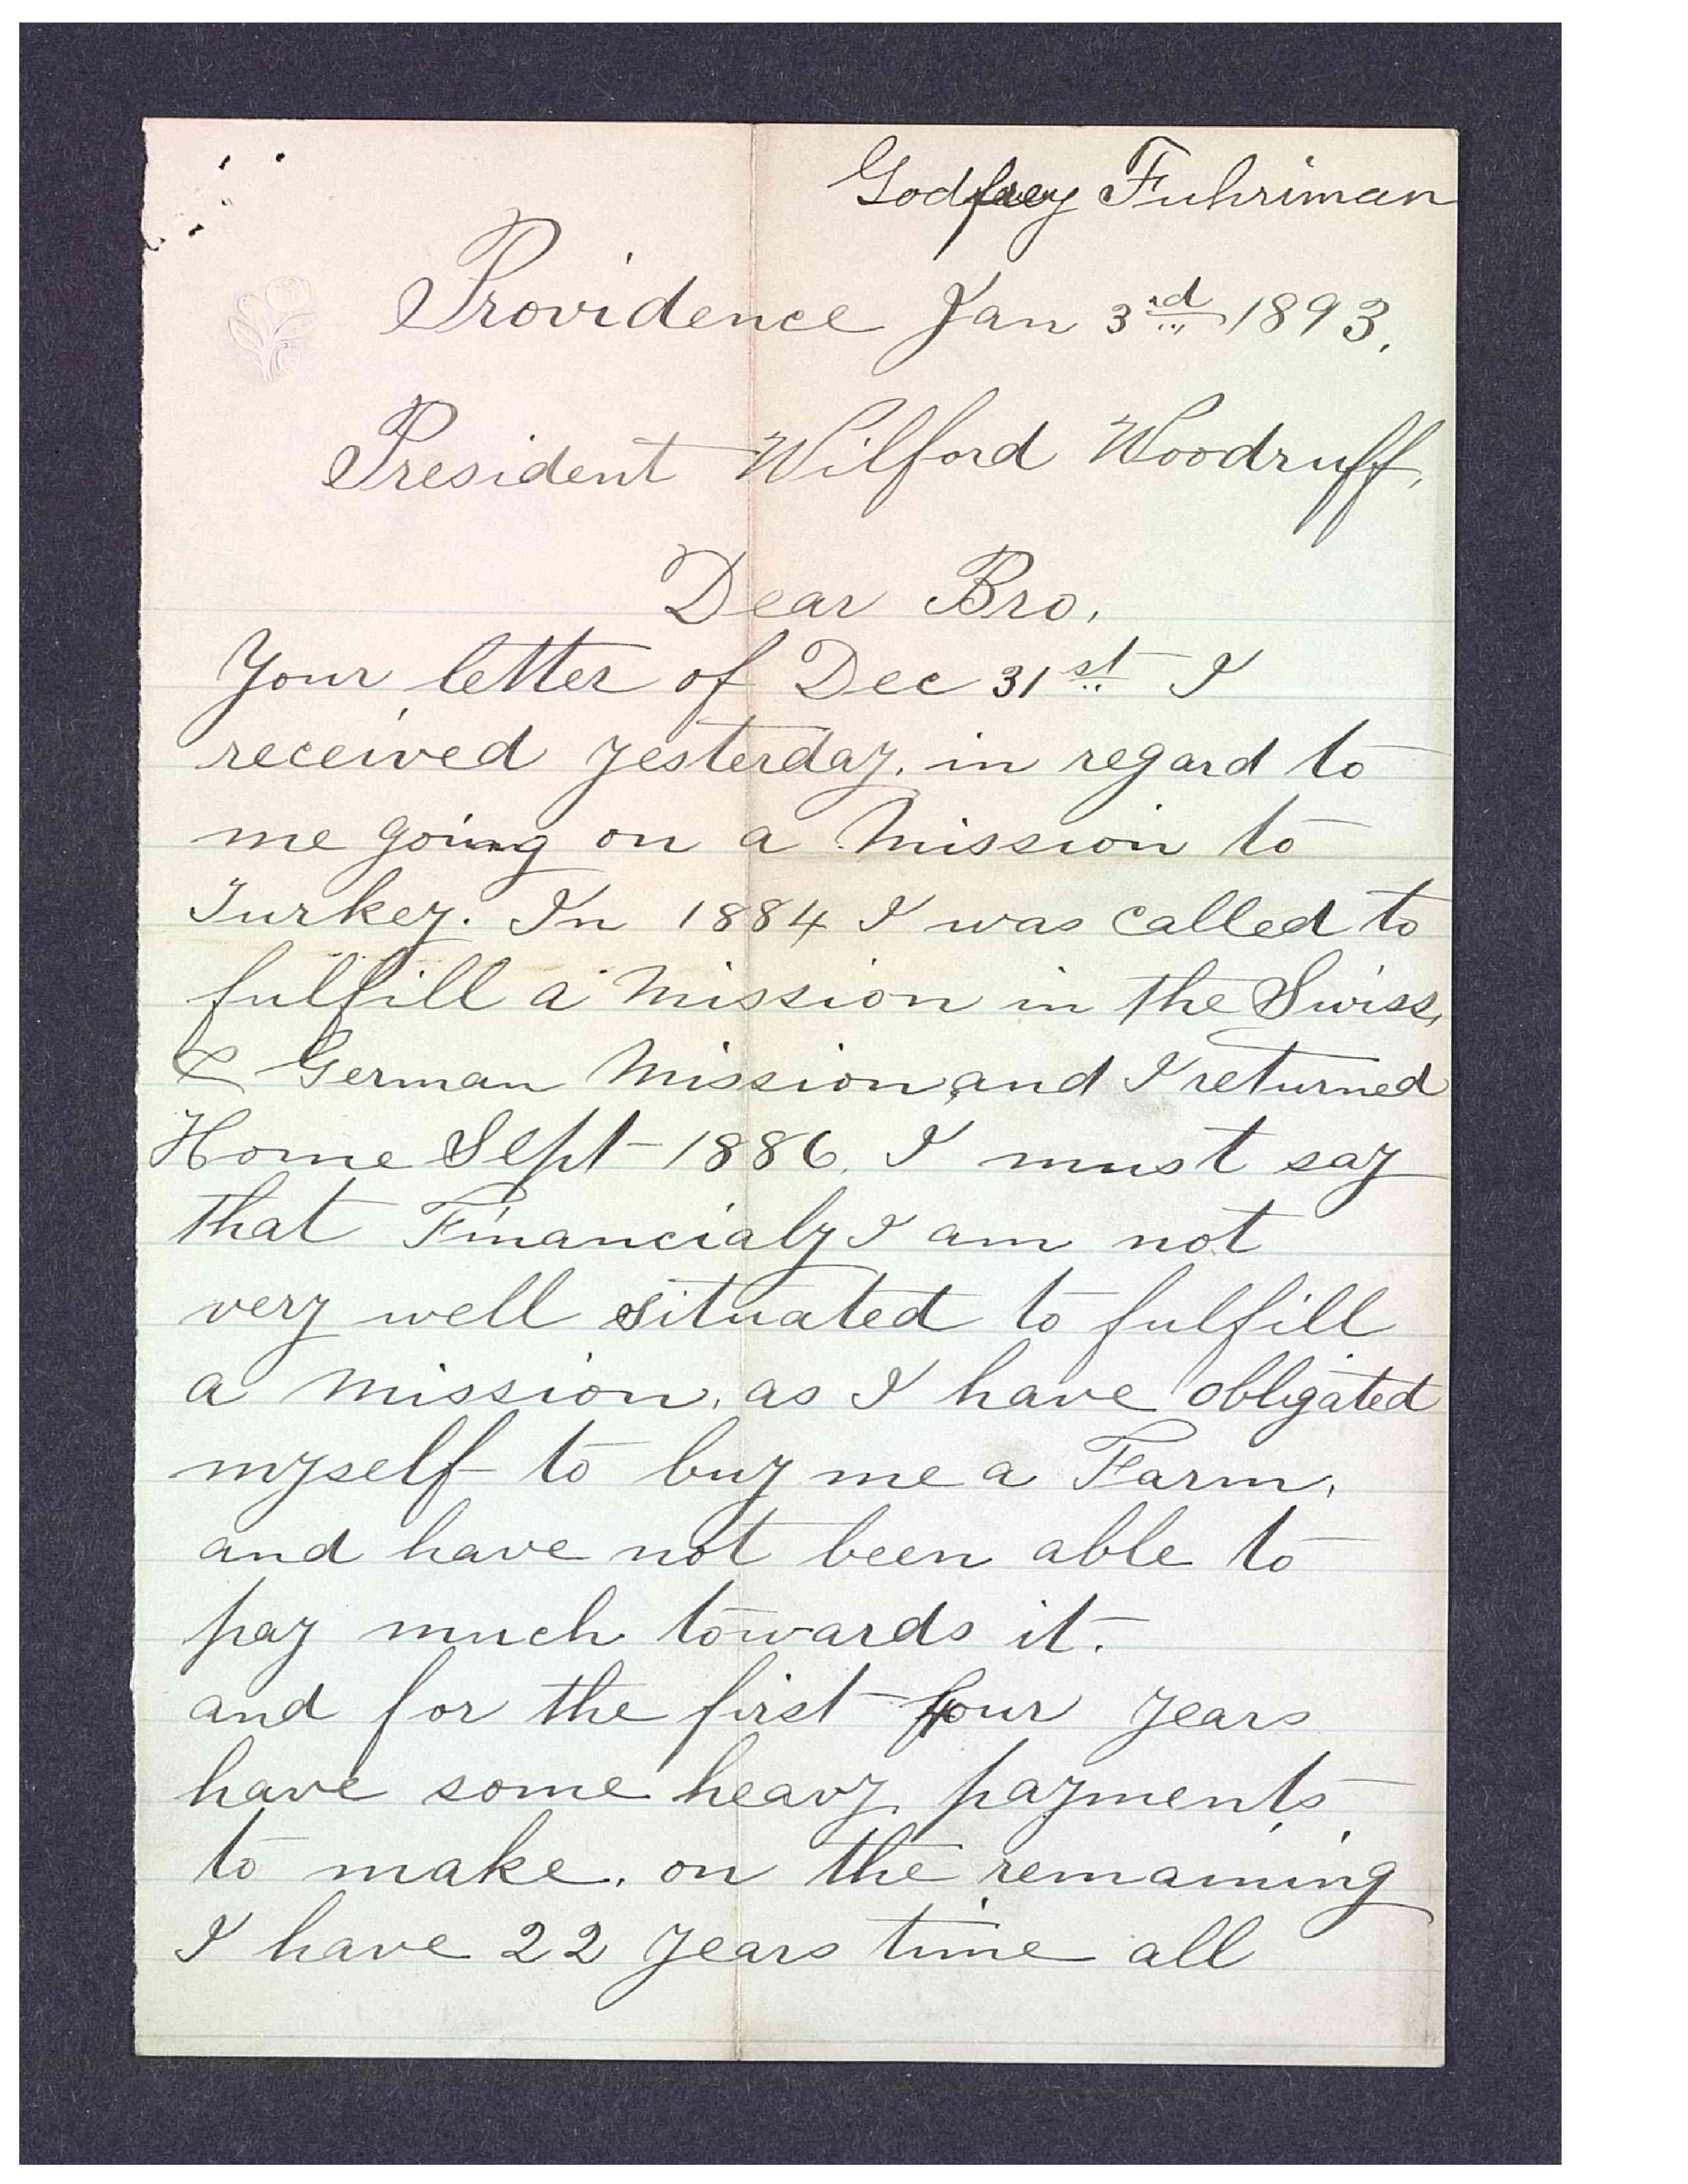 Godfrey Fuhriman
Providence Jan 3rd 1893.
President Wilford Woodruff,
Dear Bro,
Your letter of Dec 31st I
received yesterday, in regard to
me going on a Mission to
Turkey. In 1884 I was called to
fulfill a Mission in the Swiss,
& German Mission, and I returned
Home Sept 1886, I must say
that Financialy I am not
very well situated to fulfill
a Mission, as I have obligated
myself to buy me a Farm,
and have not been able to
pay much towards it.
and for the first four years
have some heavy payments
to make, on the remaining
I have 22 years time all